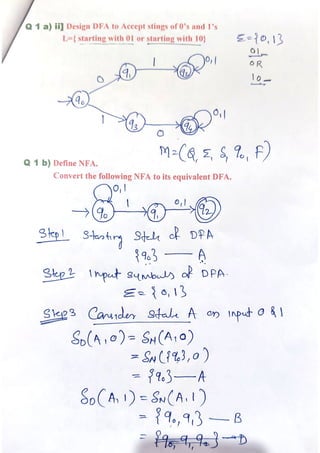 Q 1 a) ii] Design DFA to Accept stings of 0's and 1's
L={ starting with 01 or starting with 10}
Σ = {0,1}
01
OR
10
q0 0 q1 1 q2 0,1
1 q3 0 q4 0,1
M=(Q, Σ, δ, q0, F)
Q 1 b) Define NFA.
Convert the following NFA to its equivalent DFA.
0,1
q0 1 q1 0,1 q2
Step1 Starting State of DFA
{q0} — A
Step 2 Input Symbols of DFA.
Σ = {0,1}
Step 3 Consider State A on input 0 & 1
δD(A,0) = δN(A,0)
= δN({q0},0)
= {q0} — A
δD(A,1) = δN(A,1)
= {q0,q1} — B
= {q0,q1,q2} → D